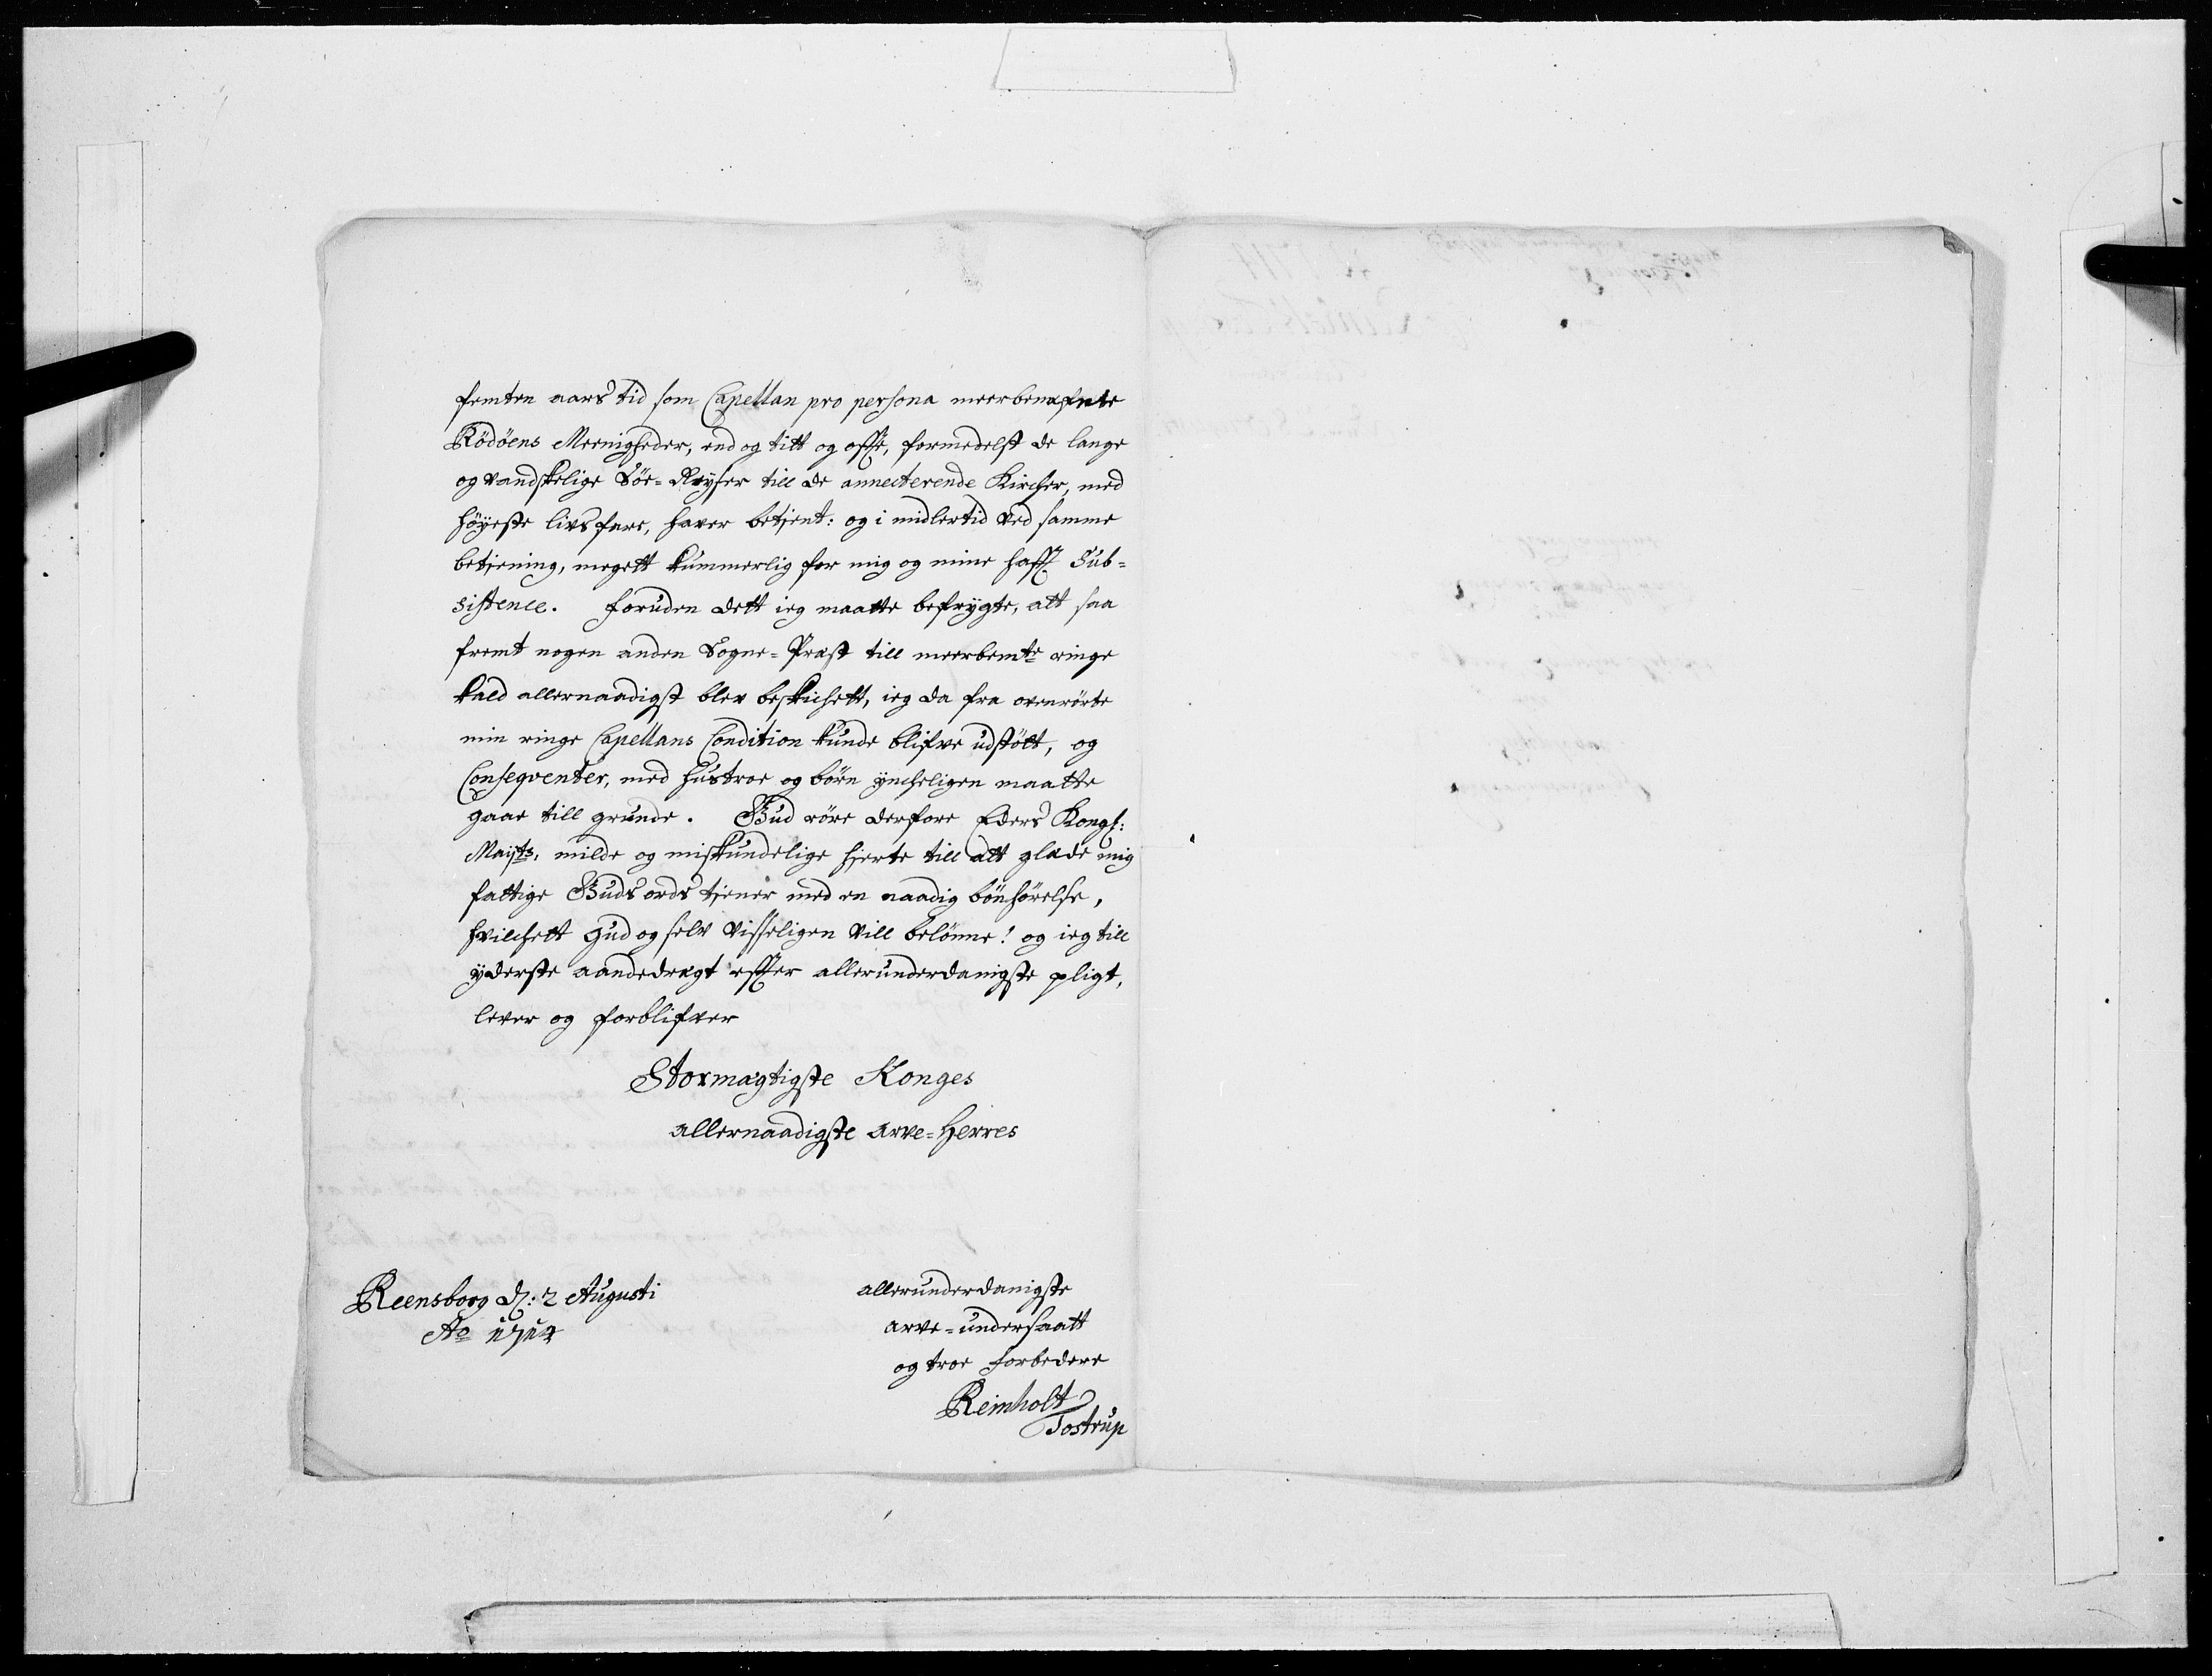 femten aars tid som Capellan pro persona meerbenefnte
Rödöens Meenigheder, end og titt og offte, formedelst de lange
og vandskelige Söe-Reyser till de annecterende Kircher, med
höyeste livs fare, haver betient: og i midlertid ved samme
betiening, megett kummerlig for mig og mine hafft Sub-
sistence. Foruden dett ieg maatte befrygte, att saa
fremt nogen anden Sogne-Præst till meerbemte ringe
kald allernaadigst blev beskichett, ieg da fra ovenrörte
min ringe Capellans Condition kunde blifve udstött, og
Conseqventer, med hustroe og börn ynchseligen maatte
gaae till grunde. Gud röre derfore Eders Kongl:
Mayts, milde og miskundelige hierte till att glæde mig
fattige Guds ords tiener med en naadig bönhörelse,
hvilchett Gud og selv visseligen vill belönne! og ieg till
yderste aandedrægt effter allerunderdanigste pligt,
lever og forblifver
Stormægtigste Konges
allernaadigste Arve-Herres
Reensborg d: 2 Augusti
Ao 1714
allerunderdanigste
arve-undersaatt
og troe forbedere
Reinholt
Tostrup